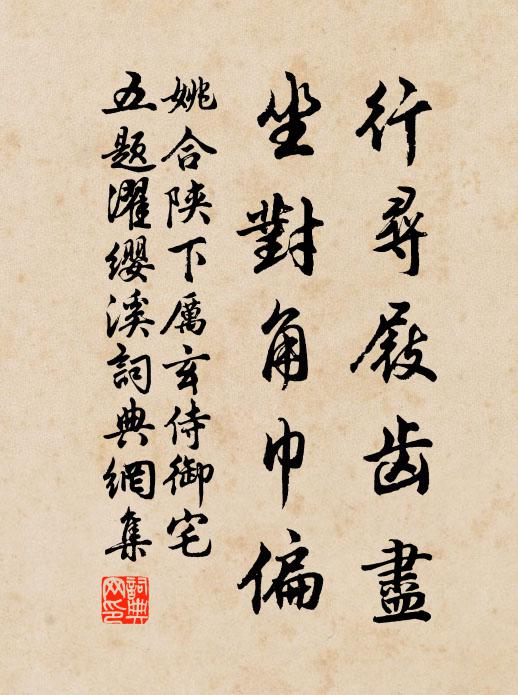 行尋屐齒盡
坐對角巾偏
姚合陝下厲玄侍御宅
五題濯纓溪詞典網集
詞典網印